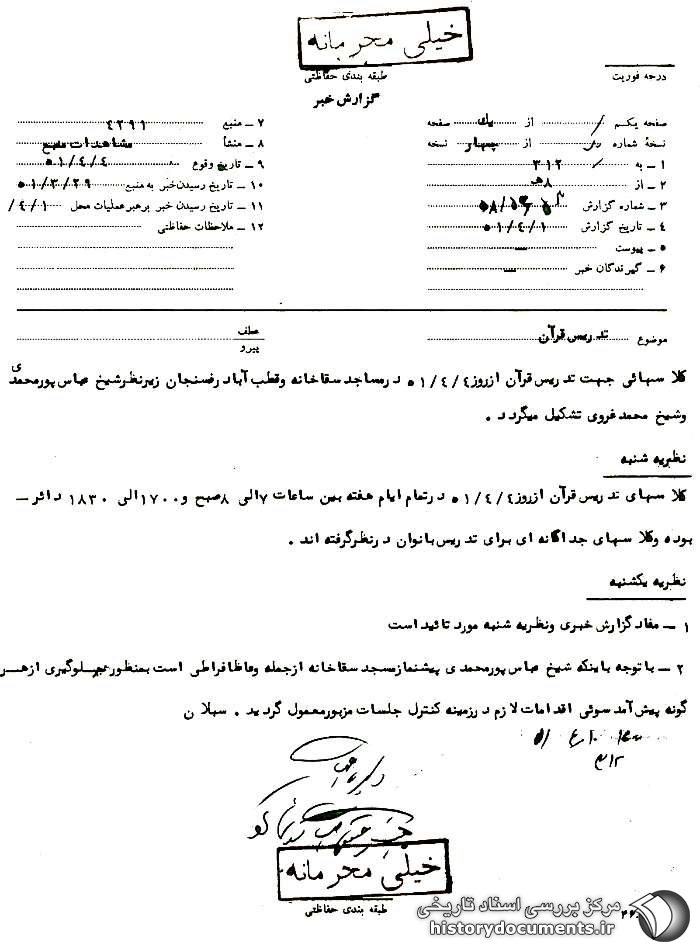 خیلی محرمانه
طبقه بندی حفاظتی
درجه فوریت
گزارش خبر
صفحه یکم / از یک صفحه
نسخه شماره از چهار نسخه
۱ ـ به ۳۱۲
۲ ـ از ۸هـ
۳ ـ شماره گزارش
۴ ـ تاریخ گزارش ۵۱/۴/۱
۵ ـ پیوست ـ
۶ ـ گیرندگان خبر ـ
۷ ـ منبع ۴۲۹۱
۸ ـ منشأ مشاهدات منبع
۹ ـ تاریخ وقوع ۵۱/۴/۴
۱۰ ـ تاریخ رسیدن خبر به منبع ۵۱/۳/۲۹
۱۱ ـ تاریخ رسیدن خبر برهبر عملیات محل /۴/۱
۱۲ ـ ملاحظات حفاظتی
موضوع تدریس قرآن
عطف
پیرو
کلاسهائی جهت تدریس قرآن ازروز ۵۱/۴/۴ درمساجد سقاخانه وقطب آباد رفسنجان زیرنظرشیخ عباس پورمحمدی
وشیخ محمد غروی تشکیل میگردد .
نظریه شنبه
کلاسهای تدریس قرآن ازروز ۵۱/۴/۴ درتمام ایام هفته بین ساعات ۷الی ۸صبح و۱۷۰۰الی ۱۸۳۰ دائر ـ
بوده وکلاسهای جداگانه ای برای تدریس بانوان درنظرگرفته اند .
نظریه یکشنبه
۱ ـ مفاد گزارش خبری ونظریه شنبه مورد تائید است
۲ ـ باتوجه باینکه شیخ عباس پورمحمدی پیشنمازمسجد سقاخانه ازجمله وعاظ افراطی است بمنظورجلوگیری ازهر
گونه پیش آمد سوئی اقدامات لازم درزمینه کنترل جلسات مزبورمعمول گردید . سبلان
۳۱۲
خیلی محرمانه
طبقه بندی حفاظتی
مرکز بررسی اسناد تاریخی
historydocuments.ir